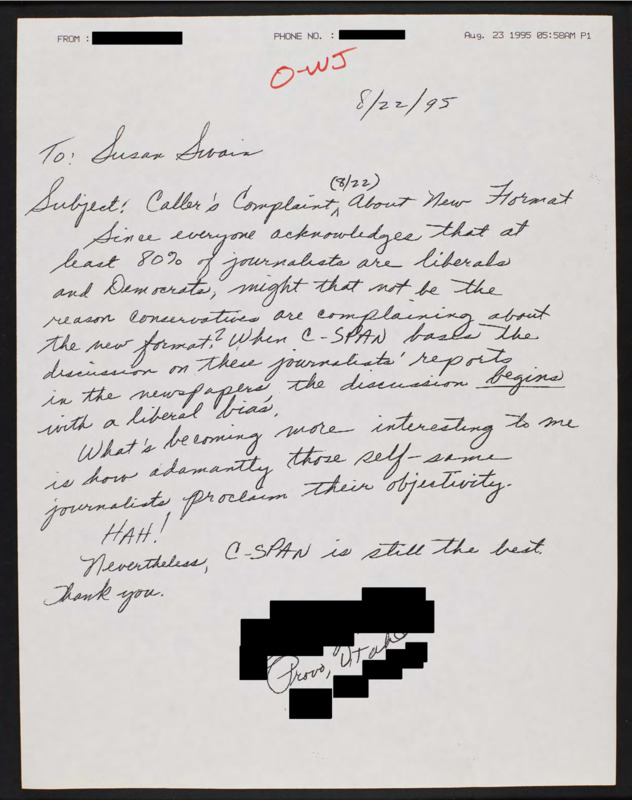 FROM :
PHONE NO. :
Aug. 23 1995 05:58AM P1
O-WJ
8/22/95
To: Susan Swain
(8/22)
Subject: Caller's Complaint ^ About New Format
Since everyone acknowledges that at
least 80% of journalists are liberals
and Democrats, might that not be the
reason conservatives are complaining about
the new format? When C-SPAN bases the
discussion on these journalists' reports
in the newspapers, the discussion begins
with a liberal bias.
What's becoming more interesting to me
is how adamantly those self-same
journalists proclaim their objectivity.
HAH!
Nevertheless, C-SPAN is still the best.
Thank you.
Provo, Utah